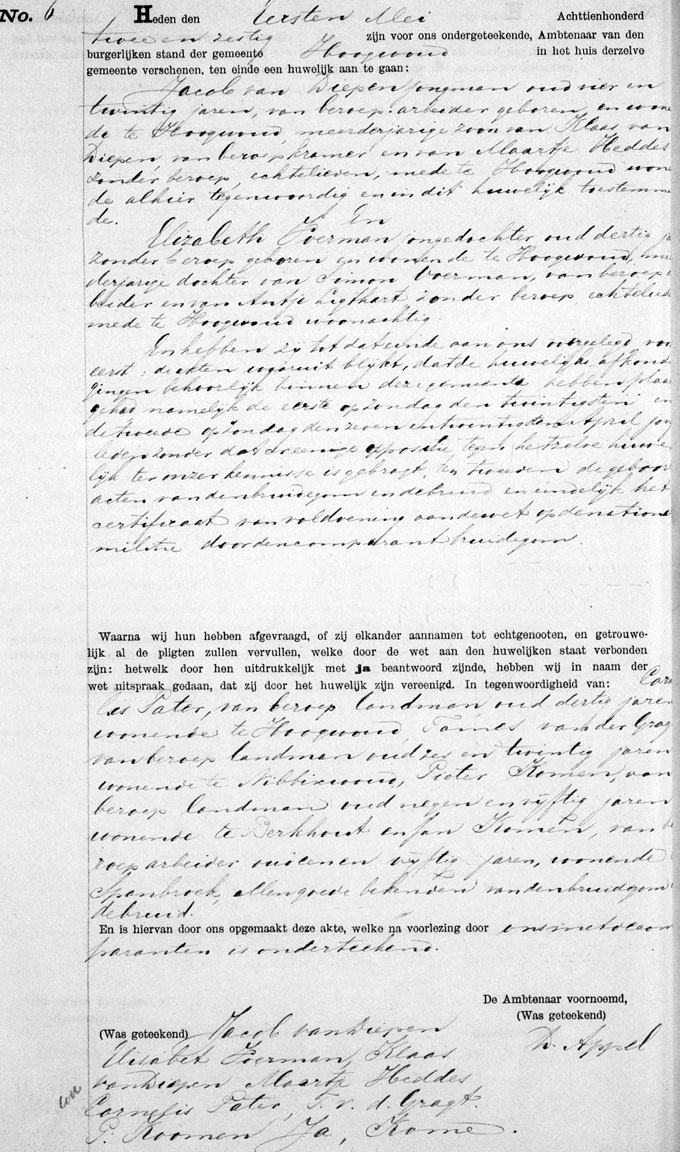 No. 6 Heden den Eersten Mei Achttienhonderd
twee en zestig zijn voor ons ondergeteekende, Ambtenaar van den
burgerlijken stand der gemeente Hoogwoud in het huis derzelve
gemeente verschenen, ten einde een huwelijk aan te gaan:
Jacob van Diepen jongman oud vier en
twintig jaren, van beroep arbeider geboren en wonen
de te Hoogwoud, meerderjarige zoon van Klaas van
Diepen, van beroep kramer en van Maartje Heddes
zonder beroep, echtelieden, mede te Hoogwoud wonen
de alhier tegenwoordig en in dit huwelijk toestemmen
de.
En
Elizabeth Voerman jongedochter oud dertig ja
zonder beroep geboren en wonende te Hoogwoud, mee
derjarige dochter van Simon Voerman, van beroep a
beider en van Antje Ligthart zonder beroep echteliede
mede te Hoogwoud woonachtig.
En hebben zij tot dat einde aan ons overgelegd, voor
eerst: de akten waaruit blijkt, dat de huwelijks afkondi
gingen behoorlijk binnen deze gemeente hebben plaats
gehad namelijk de eerste op zondag den twintigsten en
de tweede op zondag den zeven en twintigsten April, jong
leden zonder dat er eenige oppositie, tegen hetzelve huwe
lijk ter onzer kennisse is gebragt, ten tweeden de geboorte
acten van den bruidegom en de bruid en eindelijk het
certificaat van voldoening aan de wet op de nationa
militie door den comparant bruidegom.
Waarna wij hun hebben afgevraagd, of zij elkander aannamen tot echtgenooten, en getrouwe-
lijk al de pligten zullen vervullen, welke door de wet aan den huwelijken staat verbonden
zijn: hetwelk door hen uitdrukkelijk met ja beantwoord zijnde, hebben wij in naam der
wet uitspraak gedaan, dat zij door het huwelijk zijn vereenigd. In tegenwoordigheid van: Corne
lis Pater, van beroep landman, oud dertig jaren
wonende te Hoogwoud, Tames van der Gragt
van beroep landman oud zes en twintig jaren
wonende te Nibbixwoud, Pieter Komen, van
beroep landman oud negen en vijftig jaren
wonende te Berkhout en Jan Komen, van be
roep arbeider oud eenen vijftig jaren, wonende
Spanbroek, allen goede bekenden van den bruidegom
de bruid.
En is hiervan door ons opgemaakt deze akte, welke na voorlezing door ons met de com
paranten is onderteekend.
De Ambtenaar voornoemd,
(Was geteekend)
(Was geteekend) Jacob van Diepen
Elisabet Voerman, Klaas
van Diepen Maartje Heddes
Cornelis Pater, T. v. d. Gragt.
P. Koomen Ja, Kome.
Appel